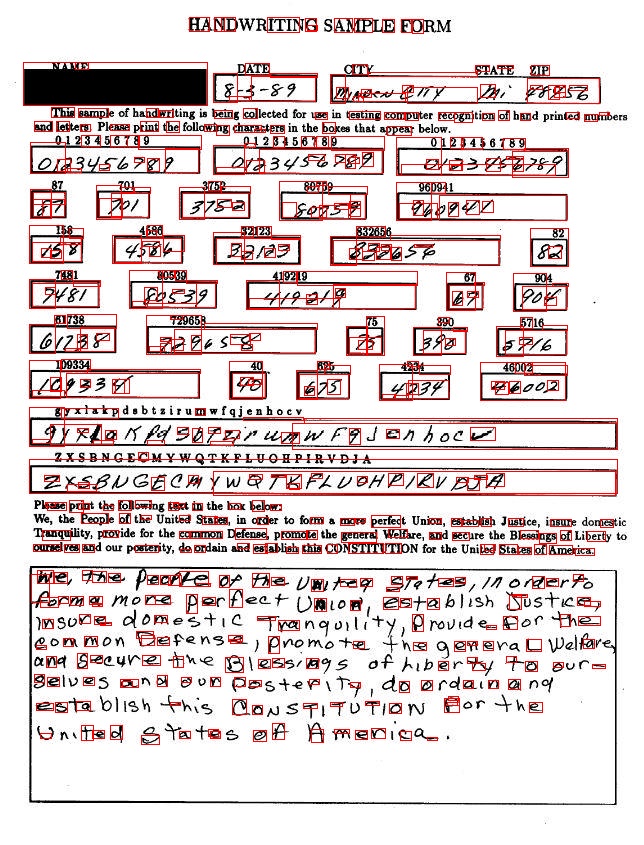 HANDWRITING SAMPLE FORM
NAME DATE CITY STATE ZIP
8-3-89 MINDEN CITY Mi 48456
This sample of handwriting is being collected for use in testing computer recognition of hand printed numbers
and letters. Please print the following characters in the boxes that appear below.
0 1 2 3 4 5 6 7 8 9 0 1 2 3 4 5 6 7 8 9 0 1 2 3 4 5 6 7 8 9
0123456789 0123456789 0123456789
87 701 3752 80759 960941
87 701 3752 80759 960941
158 4586 32123 832656 82
158 4586 32123 832656 82
7481 80539 419219 67 904
7481 80539 419219 67 904
61738 729658 75 390 5716
61738 729658 75 390 5716
109334 40 625 4234 46002
109334 40 675 4234 46002
g y x l a k p d s b t z i r u m w f q j e n h o c v
g y x l a K p d s b t z i r u m w F q J e n h o c v
Z X S B N G E C M Y W Q T K F L U O H P I R V D J A
Z X S B N G E C M Y W Q T K F L U O H P I R V D J A
Please print the following text in the box below:
We, the People of the United States, in order to form a more perfect Union, establish Justice, insure domestic
Tranquility, provide for the common Defense, promote the general Welfare, and secure the Blessings of Liberty to
ourselves and our posterity, do ordain and establish this CONSTITUTION for the United States of America.
We, the People of the United States, in order to
form a more perfect Union, establish Justice,
insure domestic Tranquility, Provide For the
common Defense, promote the general Welfare,
and Secure the Blessings of Liberty To our-
selves and our Posterity, do ordain and
establish this CONSTITUTION For the
United States of America.